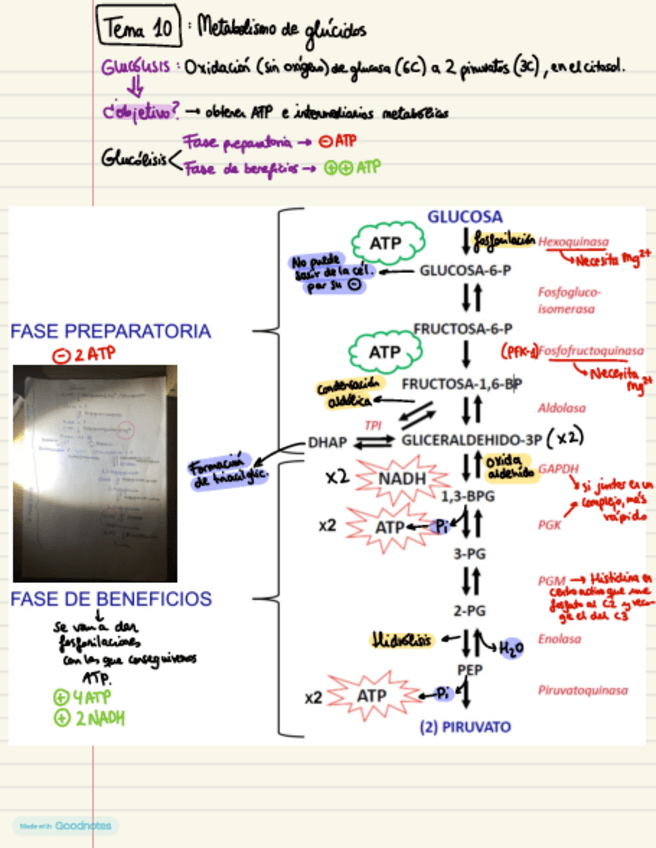 Tema 10 : Metabolismo de glúcidos
GLUCÓLISIS : Oxidación (sin oxígeno) de glucosa (6C) a 2 piruvatos (3C), en el citosol.
¿objetivo? → obtener ATP e intermediarios metabólicos
Glucólisis < Fase preparatoria → ⊖ ATP
Fase de beneficios → ⊕⊕ ATP
GLUCOSA
ATP
fosforilación
Hexoquinasa
Necesita Mg2+
No puede
salir de la cél.
por su ⊖
GLUCOSA-6-P
Fosfogluco-
isomerasa
FASE PREPARATORIA
⊖ 2 ATP
FRUCTOSA-6-P
ATP
(PFK-1) Fosfofructoquinasa
Necesita
Mg2+
condensación
aldólica
FRUCTOSA-1,6-BP
Aldolasa
TPI
DHAP
GLICERALDEHIDO-3P (x2)
Formación
de triacilglic.
x2
NADH
oxida
aldehido
GAPDH
si juntas en un
complejo, más
rápido
1,3-BPG
x2
ATP ← Pi
PGK
3-PG
PGM → Histidina en
centro activo que une
fosfato al C2 y reco-
ge el del C3
FASE DE BENEFICIOS
Se van a dar
fosforilaciones
con las que conseguiremos
ATP.
⊕ 4 ATP
⊕ 2 NADH
2-PG
Hidrólisis
H2O
Enolasa
PEP
x2
ATP ← Pi
Piruvatoquinasa
(2) PIRUVATO
Made with Goodnotes